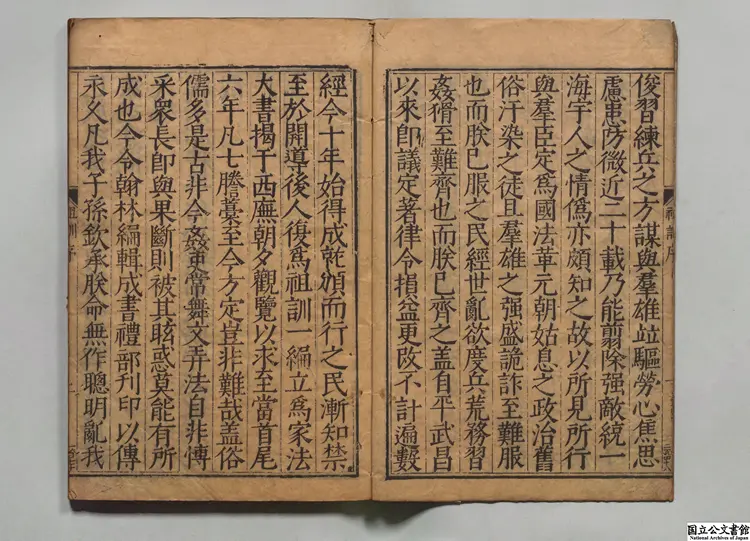 俊習練兵之方謀與羣雄竝驅勞心焦思
慮患防微近二十載乃能翦除强敵統一
海宇人之情僞亦頗知之故以所見所行
與羣臣定爲國法革元朝姑息之政治舊
俗汙染之徒且羣雄之强盛詭詐至難服
也而朕已服之民經世亂欲度兵荒務習
姦猾至難齊也而朕已齊之盖自平武昌
以來卽議定著律令損益更改不計遍數
經今十年始得成就頒而行之民漸知禁
至於開導後人復爲祖訓一編立爲家法
大書揭于西廡朝夕觀覽以求至當首尾
六年凡七謄藁至今方定豈非難哉盖俗
儒多是古非今姦吏常舞文弄法自非博
采衆長卽與果斷則被其眩惑莫能有所
成也今令翰林編輯成書禮部刊印以傳
永久凡我子孫欽承朕命無作聰明亂我
祖訓序
祖訓序
国立公文書館
National Archives of Japan